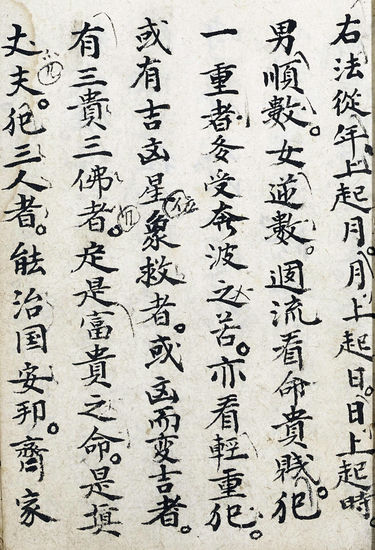 右法從年上起月。月上起日。日上起時。
男順數。女逆數。週流看命貴賤。犯
一重者多受奔波之苦。亦看輕重犯。
或有吉凶星象救者。或凶而变吉者。
有三貴三佛者。定是富貴之命。是真
丈夫。犯三人者。能治国安邦。齊家